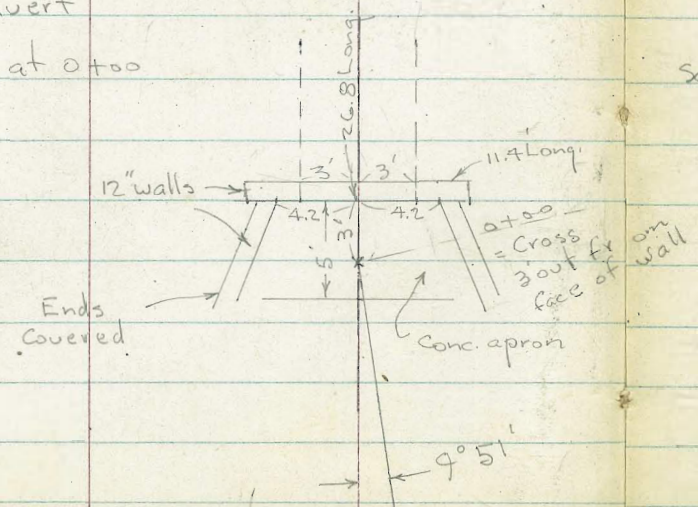 vert
at 0+00
26.8 Long.
3' 3'
11.4' Long.
12" walls
4.2 4.2
3'
5'
0+00
= Cross
3' out from
face of wall
Ends
Covered
Conc. apron
9° 51'